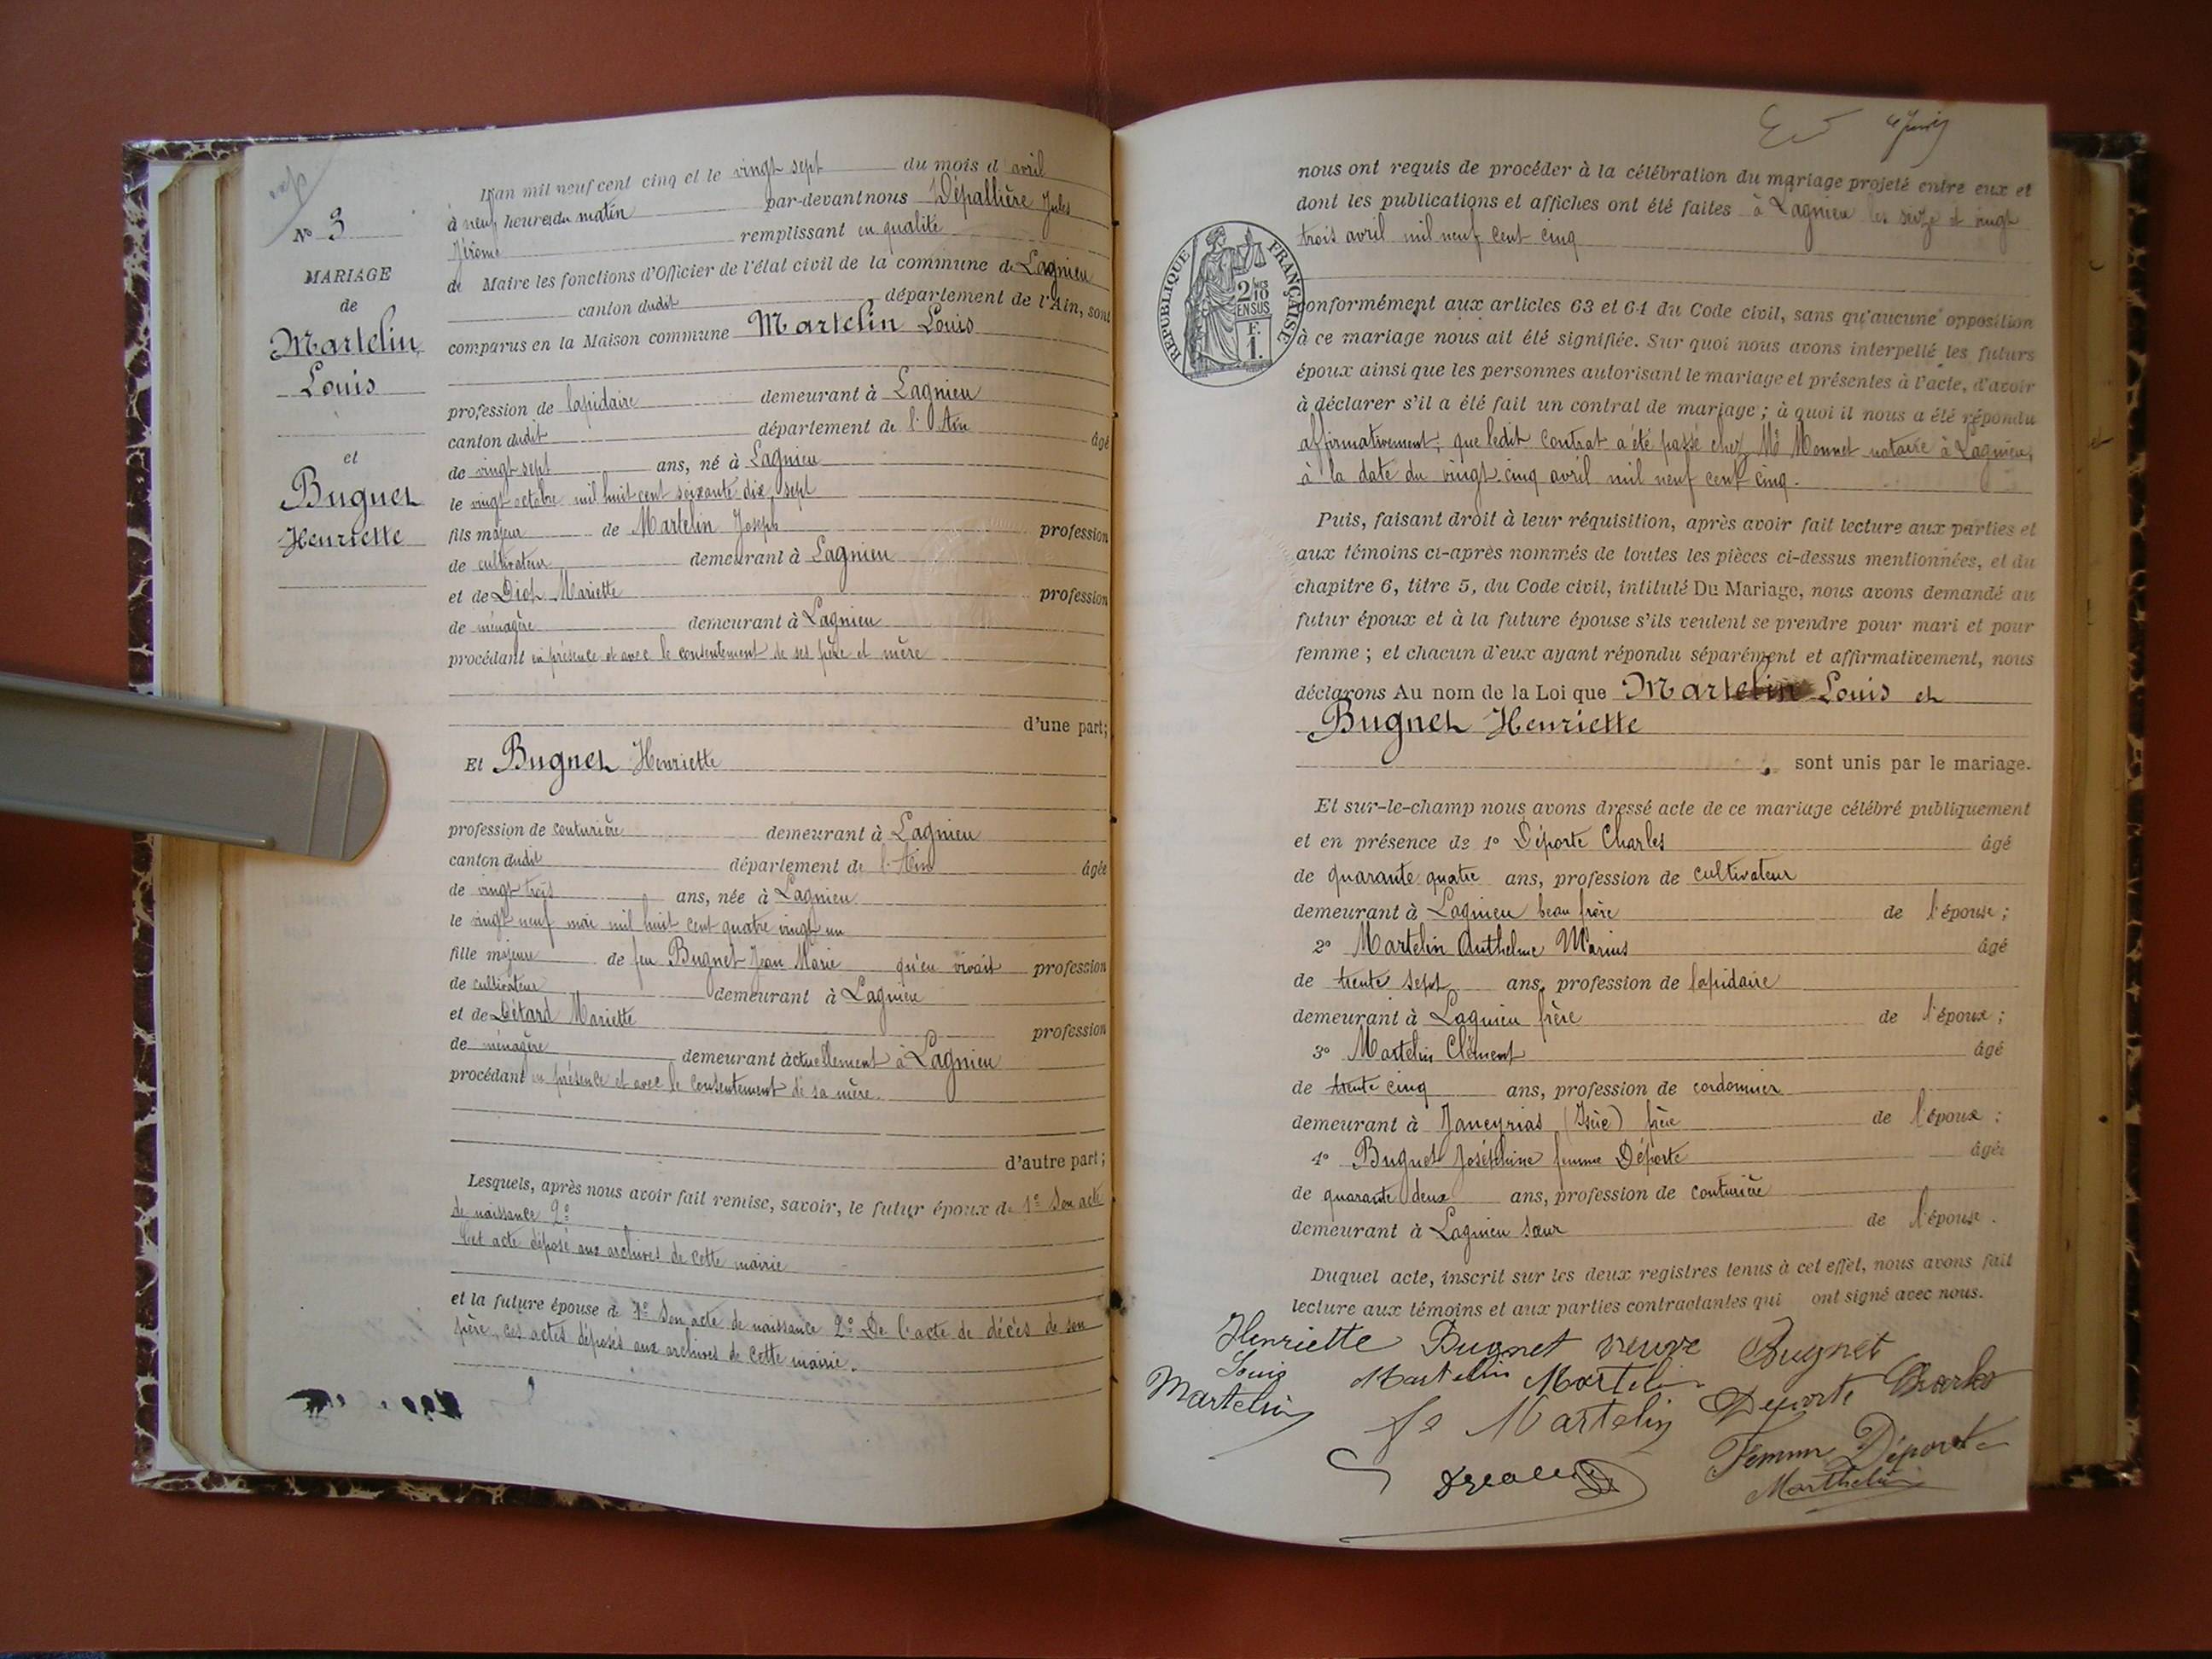 N° 3
MARIAGE
de
Martelin
Louis
et
Bugnet
Henriette
L'an mil neuf cent cinq et le vingt sept du mois d'avril
à neuf heures du matin par-devant nous Dépallière Jules
Jérome remplissant en qualité
de Maire les fonctions d'Officier de l'état civil de la commune de Lagnieu
canton dudit département de l'Ain, sont
comparus en la Maison commune Martelin Louis
profession de lapidaire demeurant à Lagnieu
canton dudit département de l'Ain âgé
de vingt sept ans, né à Lagnieu
le vingt octobre mil huit cent soixante dix sept
fils majeur de Martelin Joseph profession
de cultivateur demeurant à Lagnieu
et de Diot Mariette profession
de ménagère demeurant à Lagnieu
procédant en présence et avec le consentement de ses père et mère
d'une part;
Et Bugnet Henriette
profession de couturière demeurant à Lagnieu
canton dudit département de l'Ain âgée
de vingt trois ans, née à Lagnieu
le vingt neuf mai mil huit cent quatre vingt un
fille majeure de feu Bugnet Jean Marie qu'en vivait profession
de cultivateur demeurant à Lagnieu
et de Détard Mariette profession
de ménagère demeurant actuellement à Lagnieu
procédant en présence et avec le consentement de sa mère.
d'autre part;
Lesquels, après nous avoir fait remise, savoir, le futur époux de 1° Son acte
de naissance 2°
Cet acte déposé aux archives de cette mairie
et la future épouse de 1° Son acte de naissance 2° De l'acte de décès de son
père, ces actes déposés aux archives de cette mairie.
nous ont requis de procéder à la célébration du mariage projeté entre eux et
dont les publications et affiches ont été faites à Lagnieu les seize et vingt
trois avril mil neuf cent cinq
RÉPUBLIQUE FRANÇAISE
2/10
EN SUS
F.
1.
conformément aux articles 63 et 64 du Code civil, sans qu'aucune opposition
à ce mariage nous ait été signifiée. Sur quoi nous avons interpellé les futurs
époux ainsi que les personnes autorisant le mariage et présentes à l'acte, d'avoir
à déclarer s'il a été fait un contrat de mariage; à quoi il nous a été répondu
affirmativement, que ledit contrat a été passé chez Me Monnet notaire à Lagnieu,
à la date du vingt cinq avril mil neuf cent cinq.
Puis, faisant droit à leur réquisition, après avoir fait lecture aux parties et
aux témoins ci-après nommés de toutes les pièces ci-dessus mentionnées, et du
chapitre 6, titre 5, du Code civil, intitulé Du Mariage, nous avons demandé au
futur époux et à la future épouse s'ils veulent se prendre pour mari et pour
femme; et chacun d'eux ayant répondu séparément et affirmativement, nous
déclarons Au nom de la Loi que Martelin Louis et
Bugnet Henriette
sont unis par le mariage.
Et sur-le-champ nous avons dressé acte de ce mariage célébré publiquement
et en présence de 1° Déporte Charles âgé
de quarante quatre ans, profession de cultivateur
demeurant à Lagnieu beau frère de l'épouse;
2° Martelin Anthelme Marius âgé
de trente sept ans, profession de lapidaire
demeurant à Lagnieu frère de l'époux;
3° Martelin Clément âgé
de trente cinq ans, profession de cordonnier
demeurant à Janeyrias (Isère) frère de l'époux;
4° Bugnet Joséphine femme Déporte âgée
de quarante deux ans, profession de couturière
demeurant à Lagnieu sœur de l'épouse.
Duquel acte, inscrit sur les deux registres tenus à cet effet, nous avons fait
lecture aux témoins et aux parties contractantes qui ont signé avec nous.
Henriette Bugnet veuve Bugnet
Louis Martelin Martelin
Martelin Martelin Deporte Charles
Femme Déporte
Marthelin